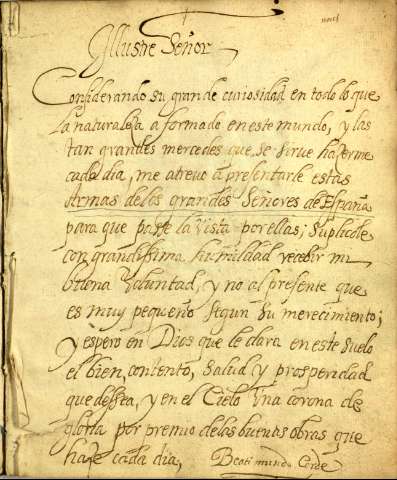 Illustre Señor
Considerando su grande curiosidad en todo lo que
la naturaleza a formado en este mundo, y las
tan grandes mercedes que se sirve hazerme
cada dia, me atrevo a presentarle estas
Armas de los grandes Señores de España
para que passe la vista por ellas; suplicole
con grandissima humildad recebir mi
buena voluntad, y no al presente que
es muy pequeño segun su merecimiento;
y espero en Dios que le dara en este suelo
el bien, contento, salud y prosperidad
que dessea, y en el Cielo una corona de
gloria por premio de las buenas obras que
haze cada dia,
Beati mundo Corde